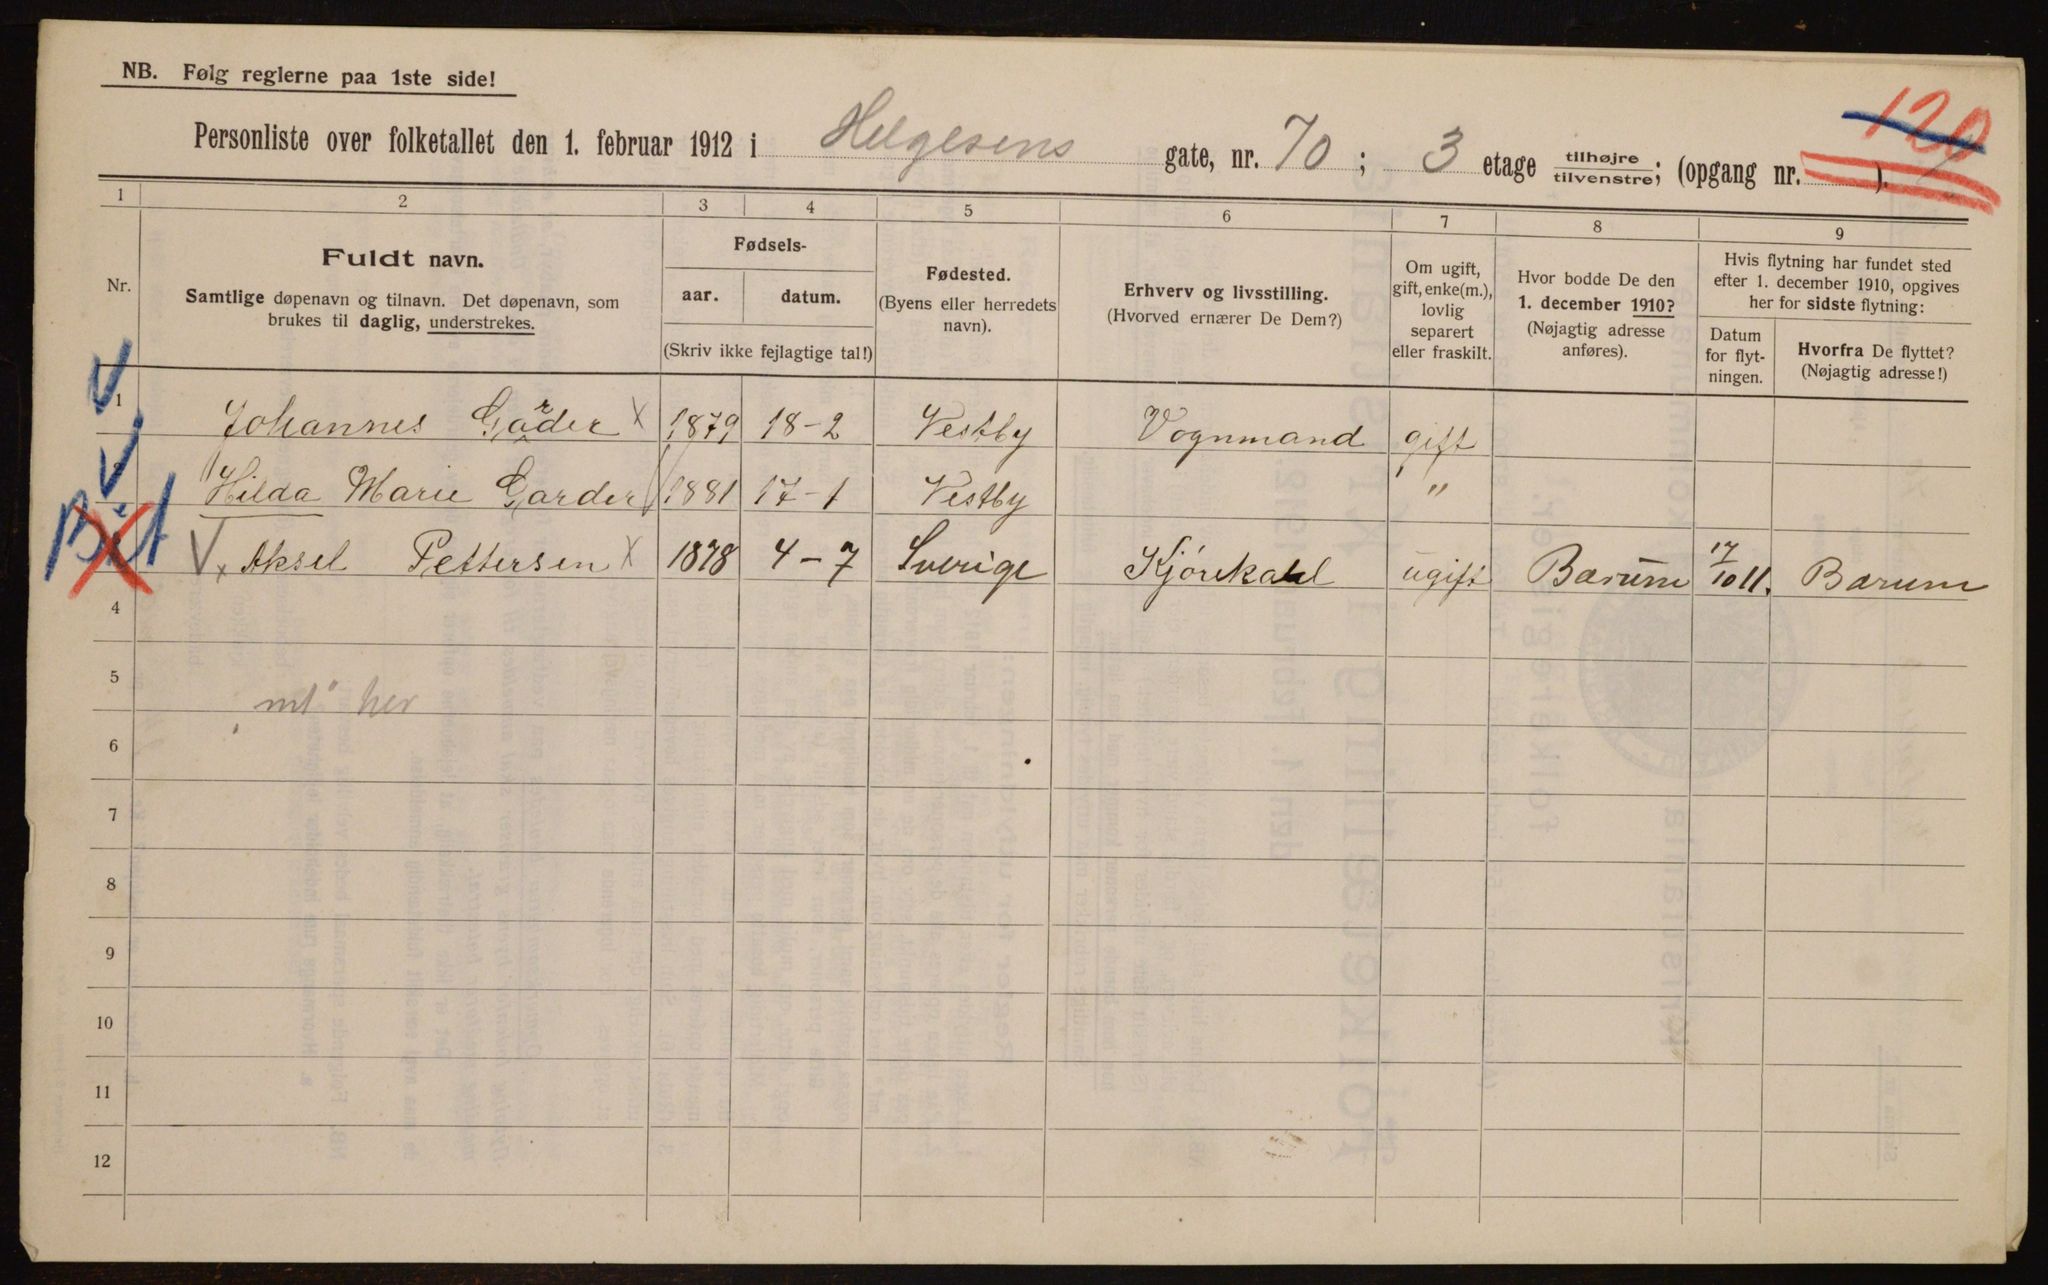 NB. Følg reglerne paa 1ste side!
120
Personliste over folketallet den 1. februar 1912 i Helgesens gate, nr. 70; 3 etage tilhøjre/tilvenstre; (opgang nr. ).
1 2 3 4 5 6 7 8 9
Nr.
Fuldt navn.
Samtlige døpenavn og tilnavn. Det døpenavn, som
brukes til daglig, understrekes.
Fødsels-
aar. datum.
(Skriv ikke fejlagtige tal!)
Fødested.
(Byens eller herredets
navn).
Erhverv og livsstilling.
(Hvorved ernærer De Dem?)
Om ugift,
gift, enke(m.),
lovlig
separert
eller fraskilt.
Hvor bodde De den
1. december 1910?
(Nøjagtig adresse
anføres).
Hvis flytning har fundet sted
efter 1. december 1910, opgives
her for sidste flytning:
Datum
for flyt-
ningen.
Hvorfra De flyttet?
(Nøjagtig adresse!)
1 Johannes Garder x 1879 18-2 Vestby Vognmand gift
Hilda Marie Garder 1881 17-1 Vestby "
x Aksel Pettersen x 1878 4-7 Sverige Kjørekarl ugift Barum 17/10 11. Barum
4
5
mt her
6
7
8
9
10
11
12